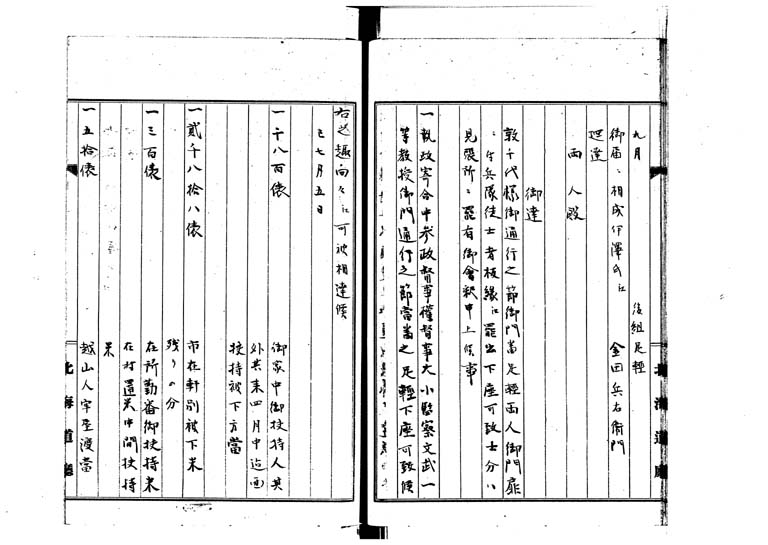 九月
後組足軽
御届ニ相成伊澤氏江 金田兵右衛門
迠達
両人殿
御達
敦千代様御通行之節御門当足軽両人御門扉
ニ今兵隊徒士者板縁江罷出下座可致士分ハ
見張所ニ罷有御會釈申上候事
一執政寄合中参政督事權督事大小監察文武一
等教授御門通行之節當番之足軽下座可致候
右之趣向々江可被相達候
巳七月五日
一千八百俵 御家中御扶持人其
外共来四月中迠面
扶持被下方當
一貳千八拾八俵 市在軒別被下米
残りの分
一三百俵 在所勤番御扶持米
在村置米中間扶持
米
一五拾俵 越山人宰屋渡當
北海道廳
北海道廳